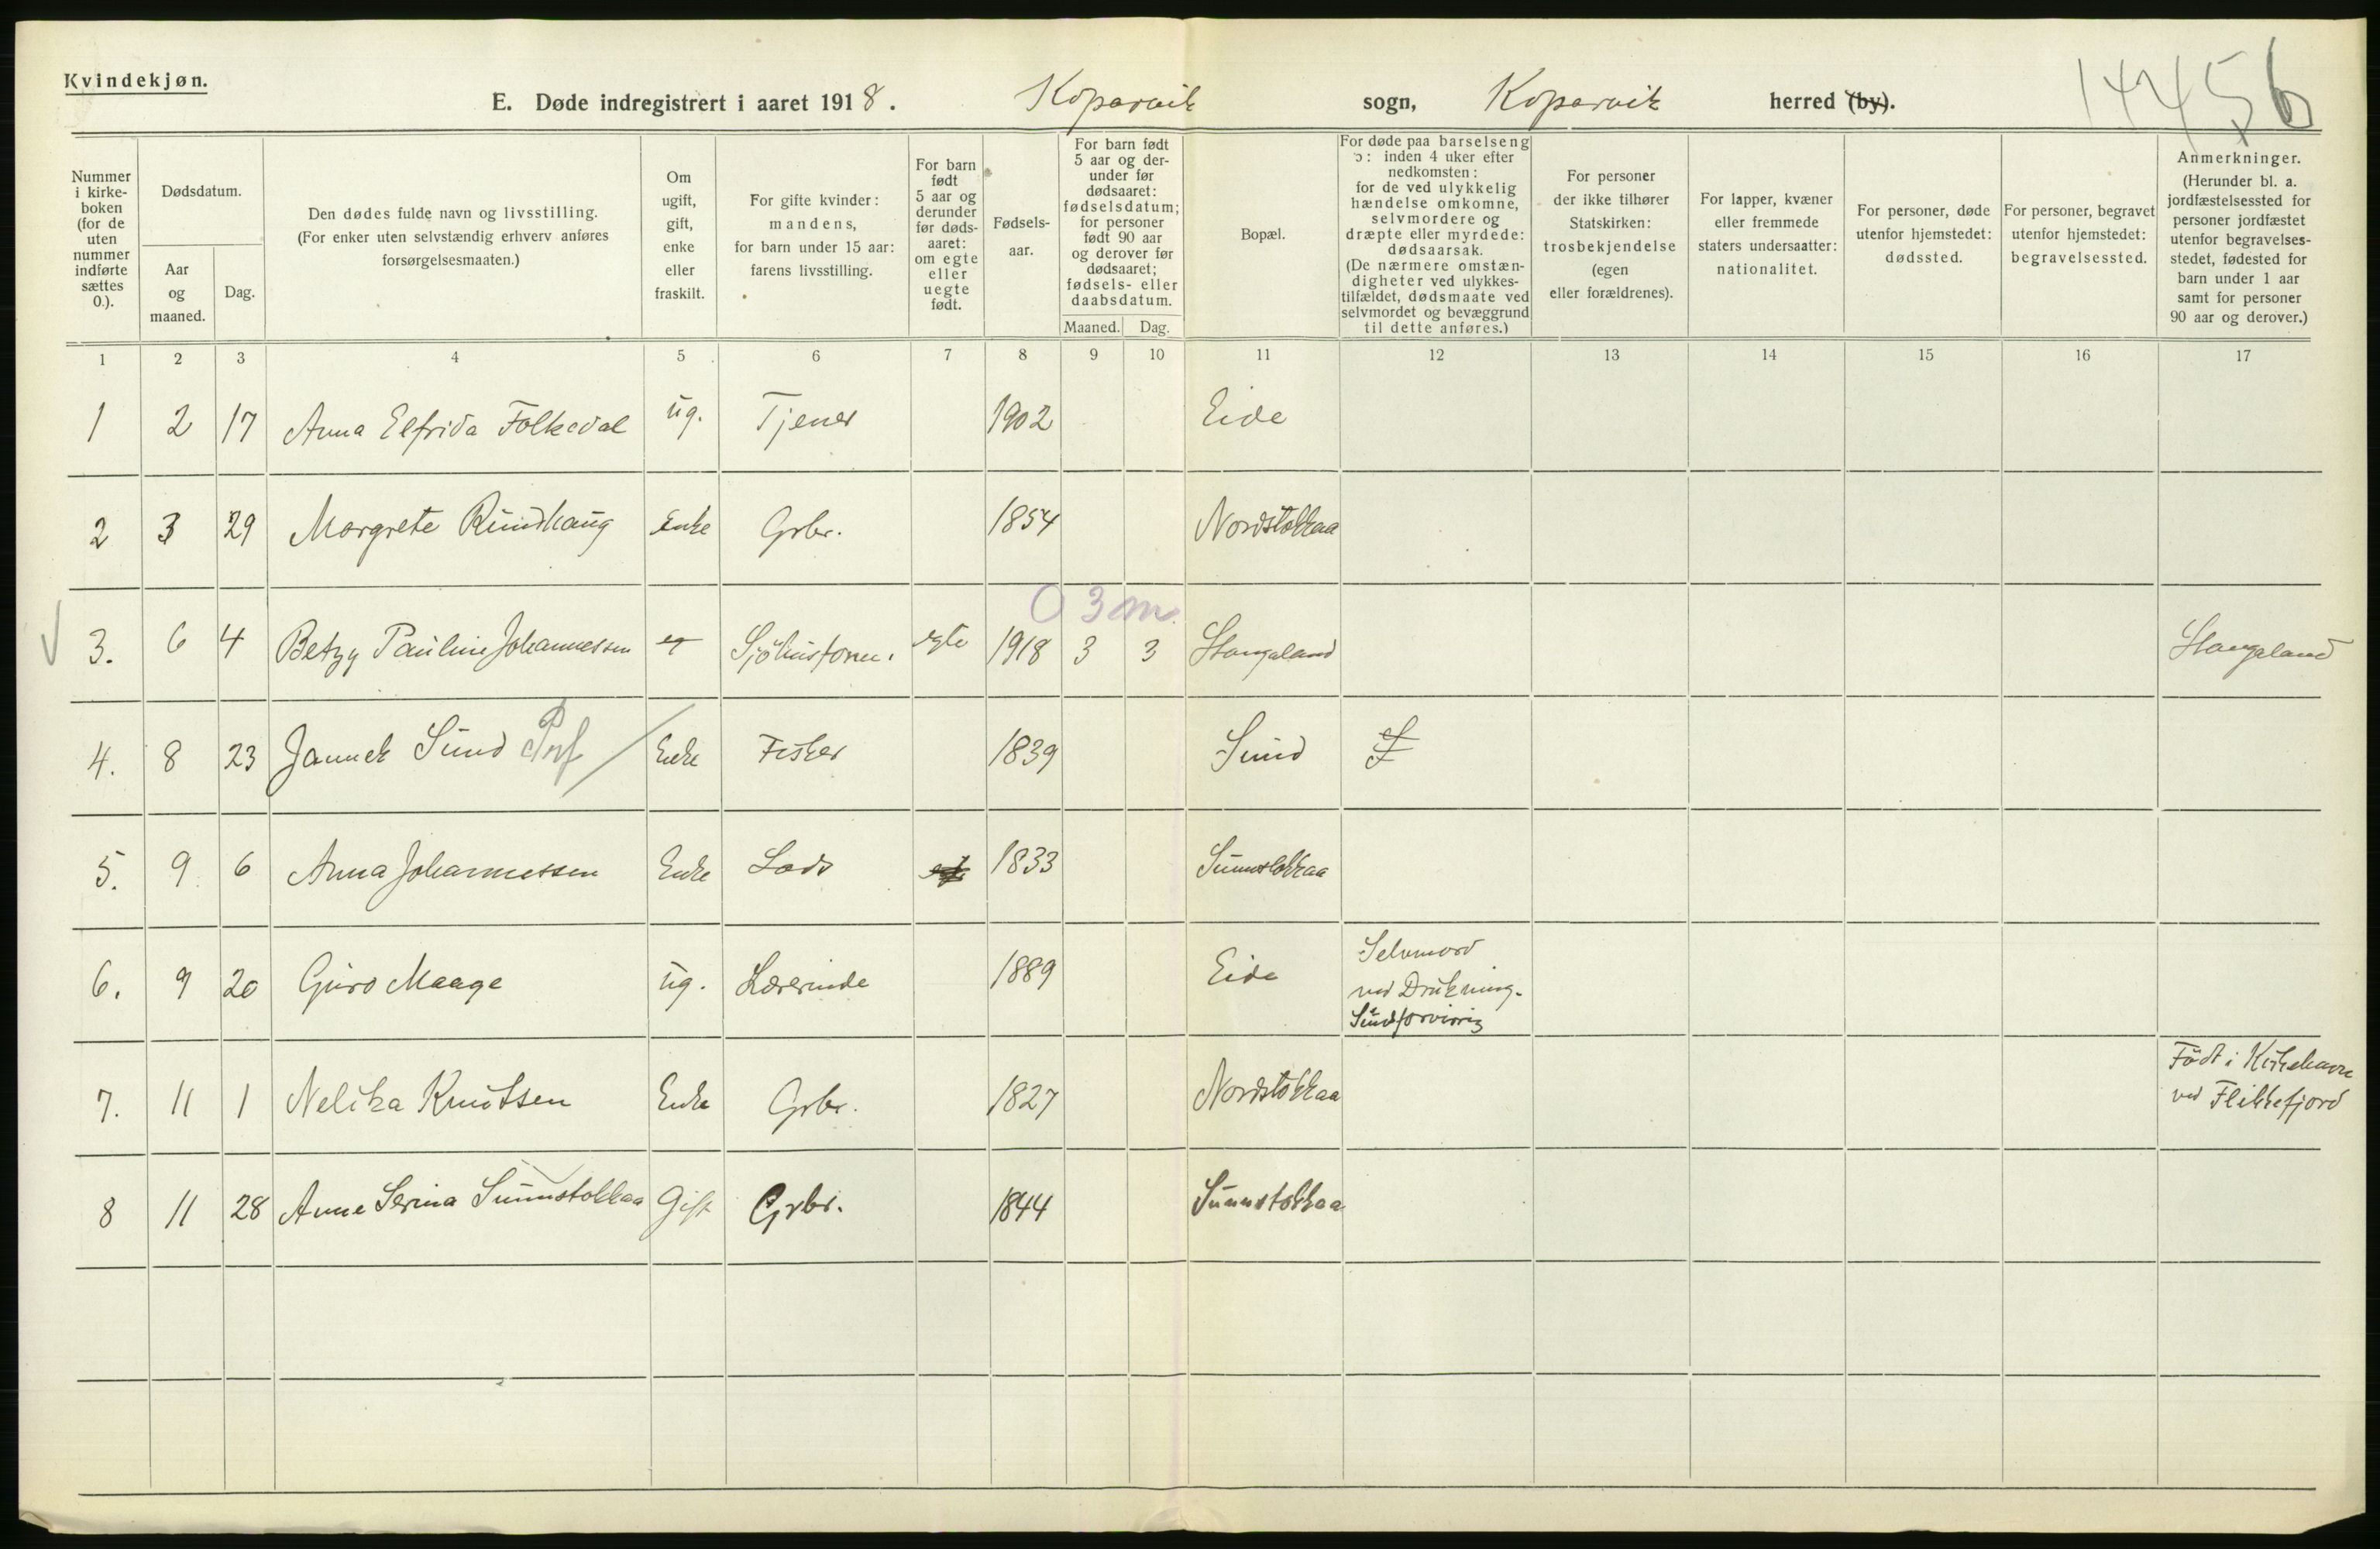 Kvindekjøn.
E. Døde indregistrert i aaret 1918. Kopervik sogn, Kopervik herred (by).
14456
Nummer i kirkeboken (for de uten nummer indførte sættes 0.).
Dødsdatum.
Aar og maaned.
Dag.
Den dødes fulde navn og livsstilling.
(For enker uten selvstændig erhverv anføres forsørgelsesmaaten.)
Om ugift, gift, enke eller fraskilt.
For gifte kvinder: mandens, for barn under 15 aar: farens livsstilling.
For barn født 5 aar og derunder før dødsaaret: om egte eller uegte født.
Fødselsaar.
For barn født 5 aar og derunder før dødsaaret: fødselsdatum; for personer født 90 aar og derover før dødsaaret; fødsels- eller daabsdatum.
Maaned. Dag.
Bopæl.
For døde paa barselseng ɔ: inden 4 uker efter nedkomsten: for de ved ulykkelig hændelse omkomne, selvmordere og dræpte eller myrdede: dødsaarsak. (De nærmere omstændigheter ved ulykkestilfældet, dødsmaate ved selvmordet og bevæggrund til dette anføres.)
For personer der ikke tilhører Statskirken: trosbekjendelse (egen eller forældrenes).
For lapper, kvæner eller fremmede staters undersaatter: nationalitet.
For personer, døde utenfor hjemstedet: dødssted.
For personer, begravet utenfor hjemstedet: begravelsessted.
Anmerkninger. (Herunder bl. a. jordfæstelsessted for personer jordfæstet utenfor begravelsesstedet, fødested for barn under 1 aar samt for personer 90 aar og derover.)
1 2 3 4 5 6 7 8 9 10 11 12 13 14 15 16 17
1 2 17 Anna Elfrida Folkedal ug. Tjener 1902 Eide
2 3 29 Margrete Rundhaug Enke Grbr. 1854 Nordstokkaa
0 3 m.
3. 6 4 Betzy Pauline Johannessen Sjöhusform. egte 1918 3 3 Stangeland Stangeland
4. 8 23 Sund Enke Fisker 1839 Sund
5. 9. 6 Anna Johannessen Enke Lods 1833 Sunnstokkaa
6. 9 20 Guro Maage ug. Lærerinde 1889 Eide Selvmord
ved Drukning.
7. 11 1 Nelika Knutsen Enke Grbr. 1827 Nordstokkaa Födt i Kirkehavn
ved Flikkefjord
8 11 28 Anne Serina Sunnstokkaa Gift Grbr. 1844 Sunnstokkaa